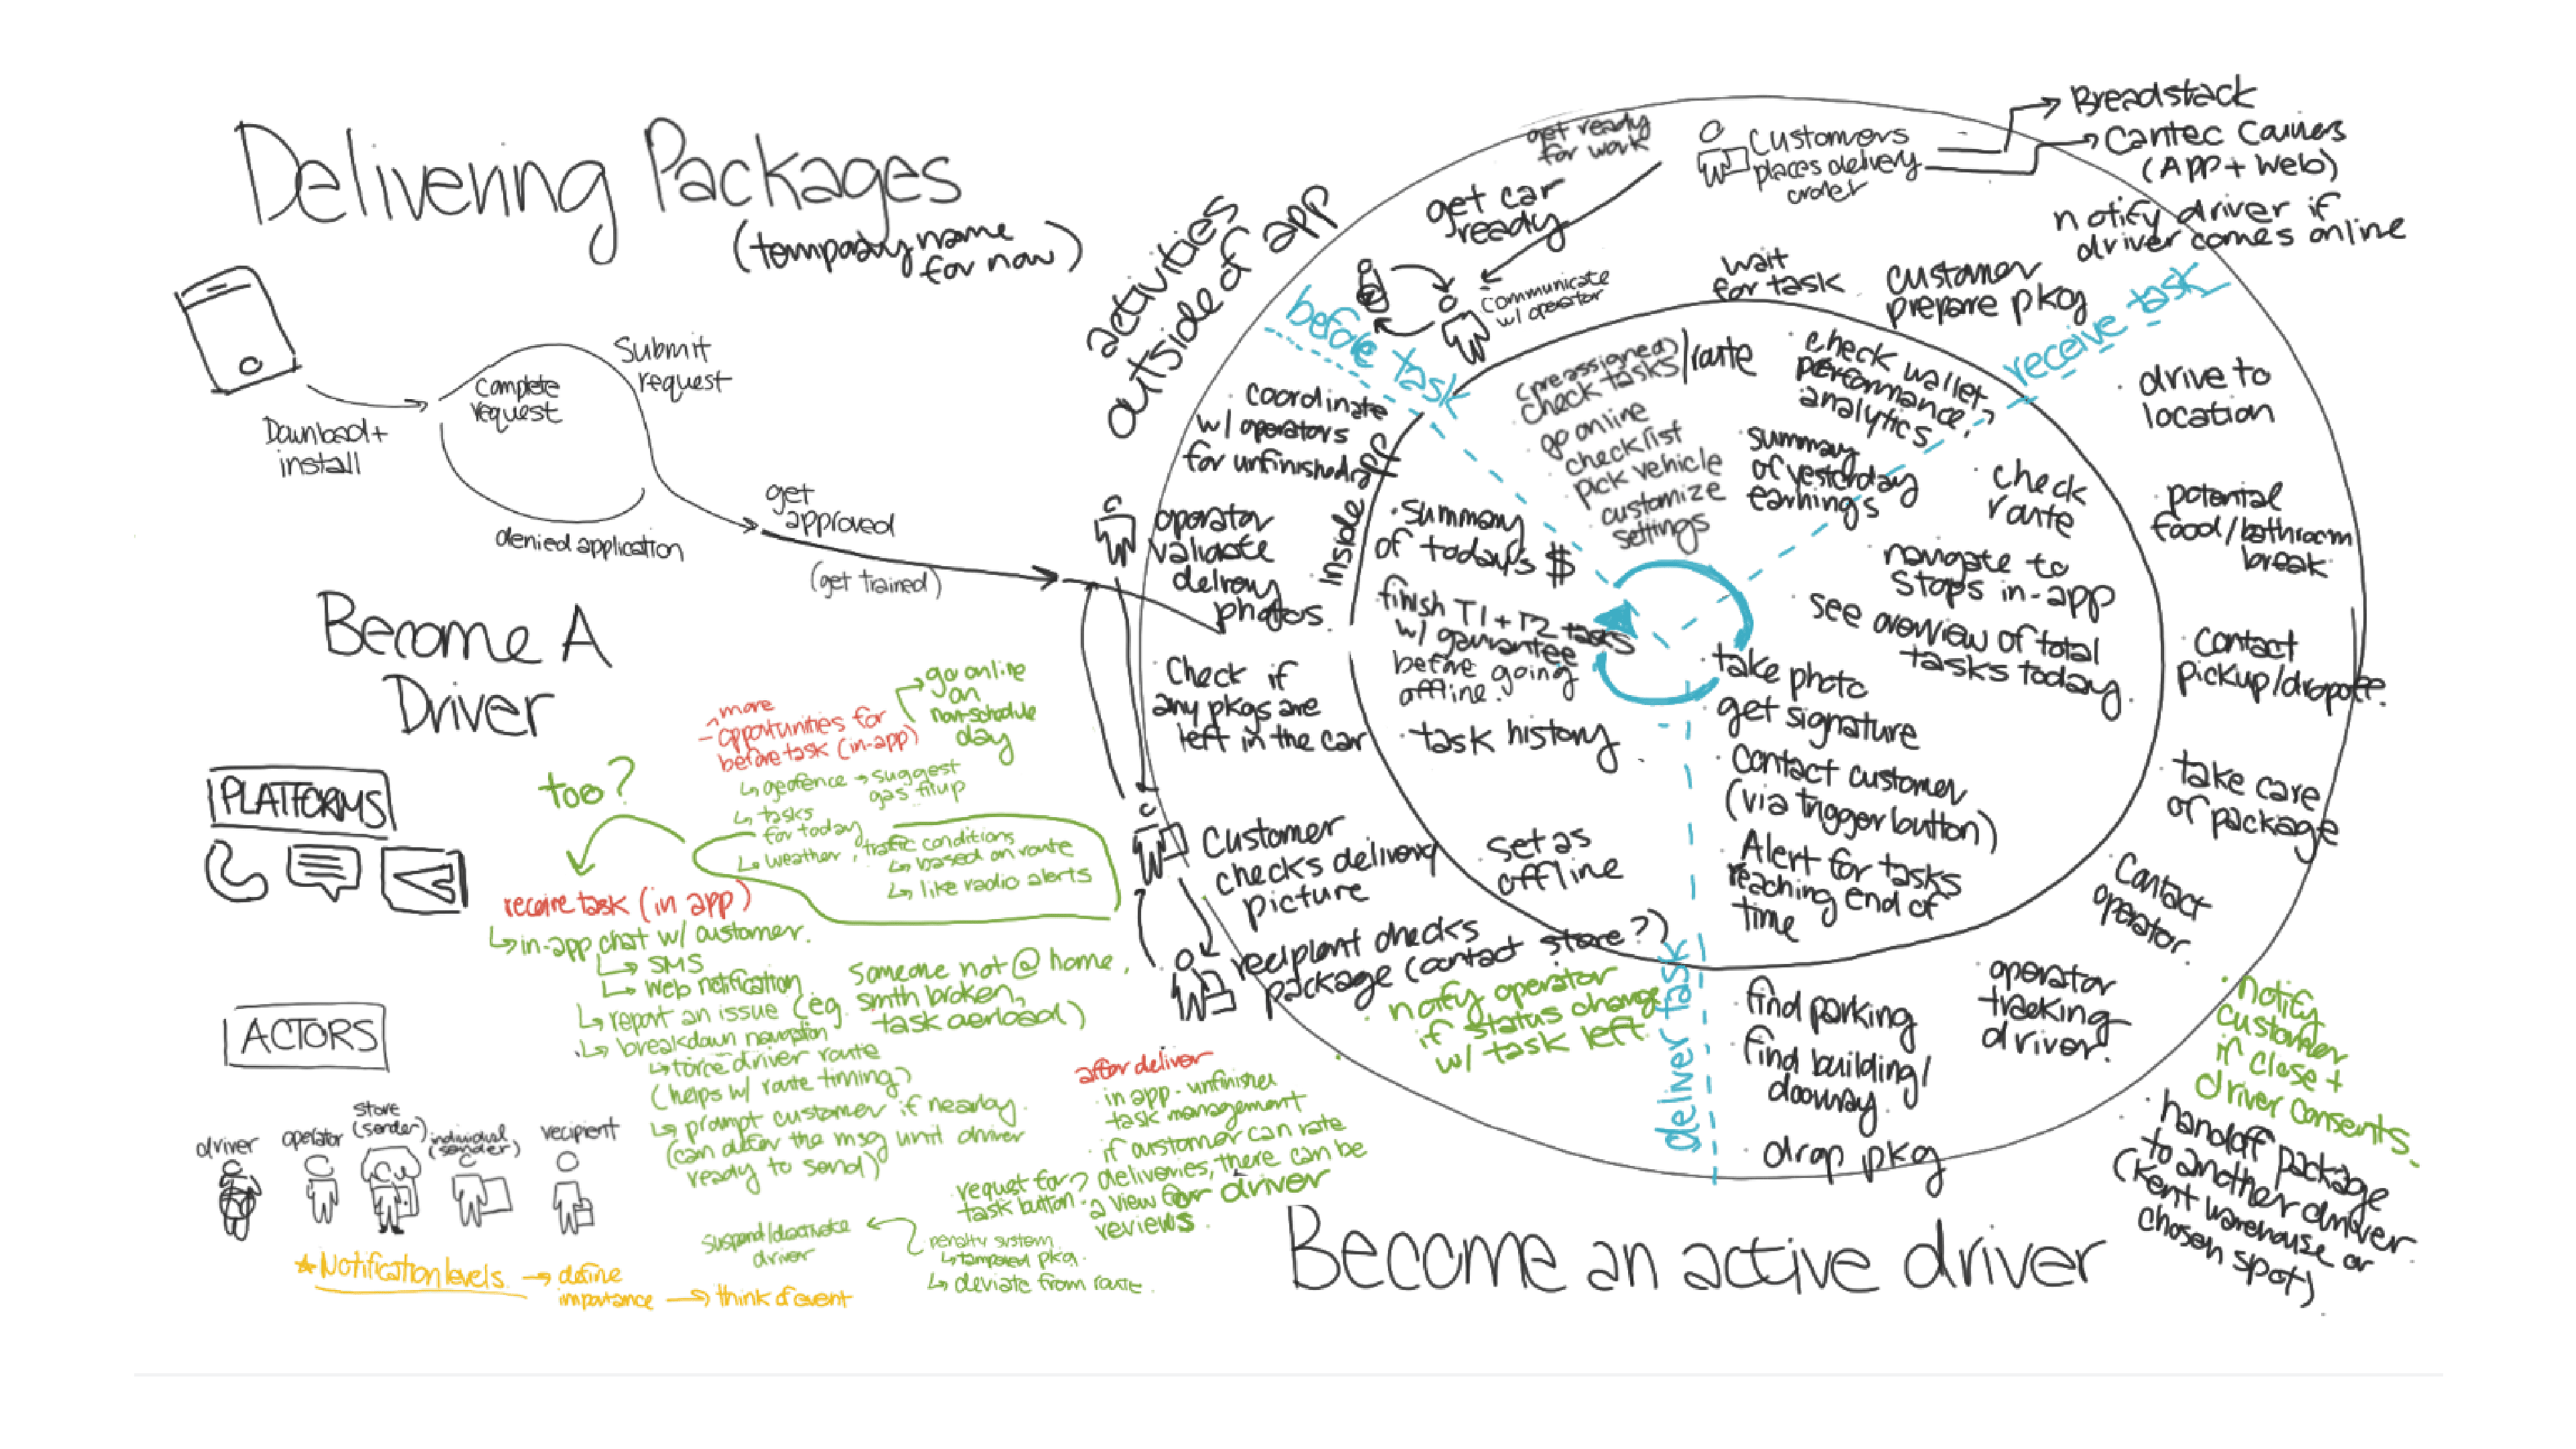 Delivering Packages
(tempoary name
for now)
Download +
install
Complete
request
Submit
request
denied application
get
approved
(get trained)
Become A
Driver
PLATFORMS
ACTORS
driver
operator
store
(sender)
individual
(sender)
recipient
* Notification levels → define
importance → think of event
too?
- more
- opportunities for
before task (in-app)
go online
on
non-schedule
day
↳ geofence → suggest
gas fillup
↳ tasks
for today
↳ weather, traffic conditions
↳ based on route
↳ like radio alerts
receive task (in app)
↳ in-app chat w/ customer.
↳ SMS
↳ web notification
↳ report an issue (eg. someone not @ home,
smth broken,
task overload)
↳ breakdown navigation
↳ force driver route
(helps w/ route timing)
↳ prompt customer if nearby.
(can alter the msg until driver
ready to send)
after deliver
in app - unfinished
task management
if customer can rate
deliveries, there can be
a view for driver
reviews.
request for?
task button.
suspend/deactivate
driver
penalty system
↳ tampered pkg.
↳ deviate from route.
activities
outside of app
inside app
before task
receive task
deliver task
get ready
for work
get car
ready
Customers
places delivery
order
Breadstack
Cantec Couriers
(App + Web)
communicate
w/ operator
wait
for task
customer
prepare pkg
notify driver if
driver comes online
(preassigned)
check tasks/route
go online
checklist
pick vehicle
customize
settings
check wallet,
performance,
analytics
summary
of yesterday
earnings
drive to
location
potential
food/bathroom
break
contact
pickup/dropoff.
take care
of package
contact
operator.
operator
tracking
driver.
check
route
navigate to
stops in-app
see overview of total
tasks today.
notify
customer
if close +
driver consents.
handoff package
to another driver.
(Kent warehouse or
chosen spot)
take photo
get signature
Contact customer
(via trigger button)
Alert for tasks
reaching end of
time
find parking
find building/
doorway.
drop pkg
coordinate
w/ operators
for unfinished
operator
validate
delivery
photos.
Check if
any pkgs are
left in the car
Customer
checks delivery
picture
recipient checks
package (contact store?)
notify operator
if status change
w/ task left
summary
of today's $
finish T1 + T2 tasks
w/ garrantee
before going
offline.
task history
set as
offline
Become an active driver